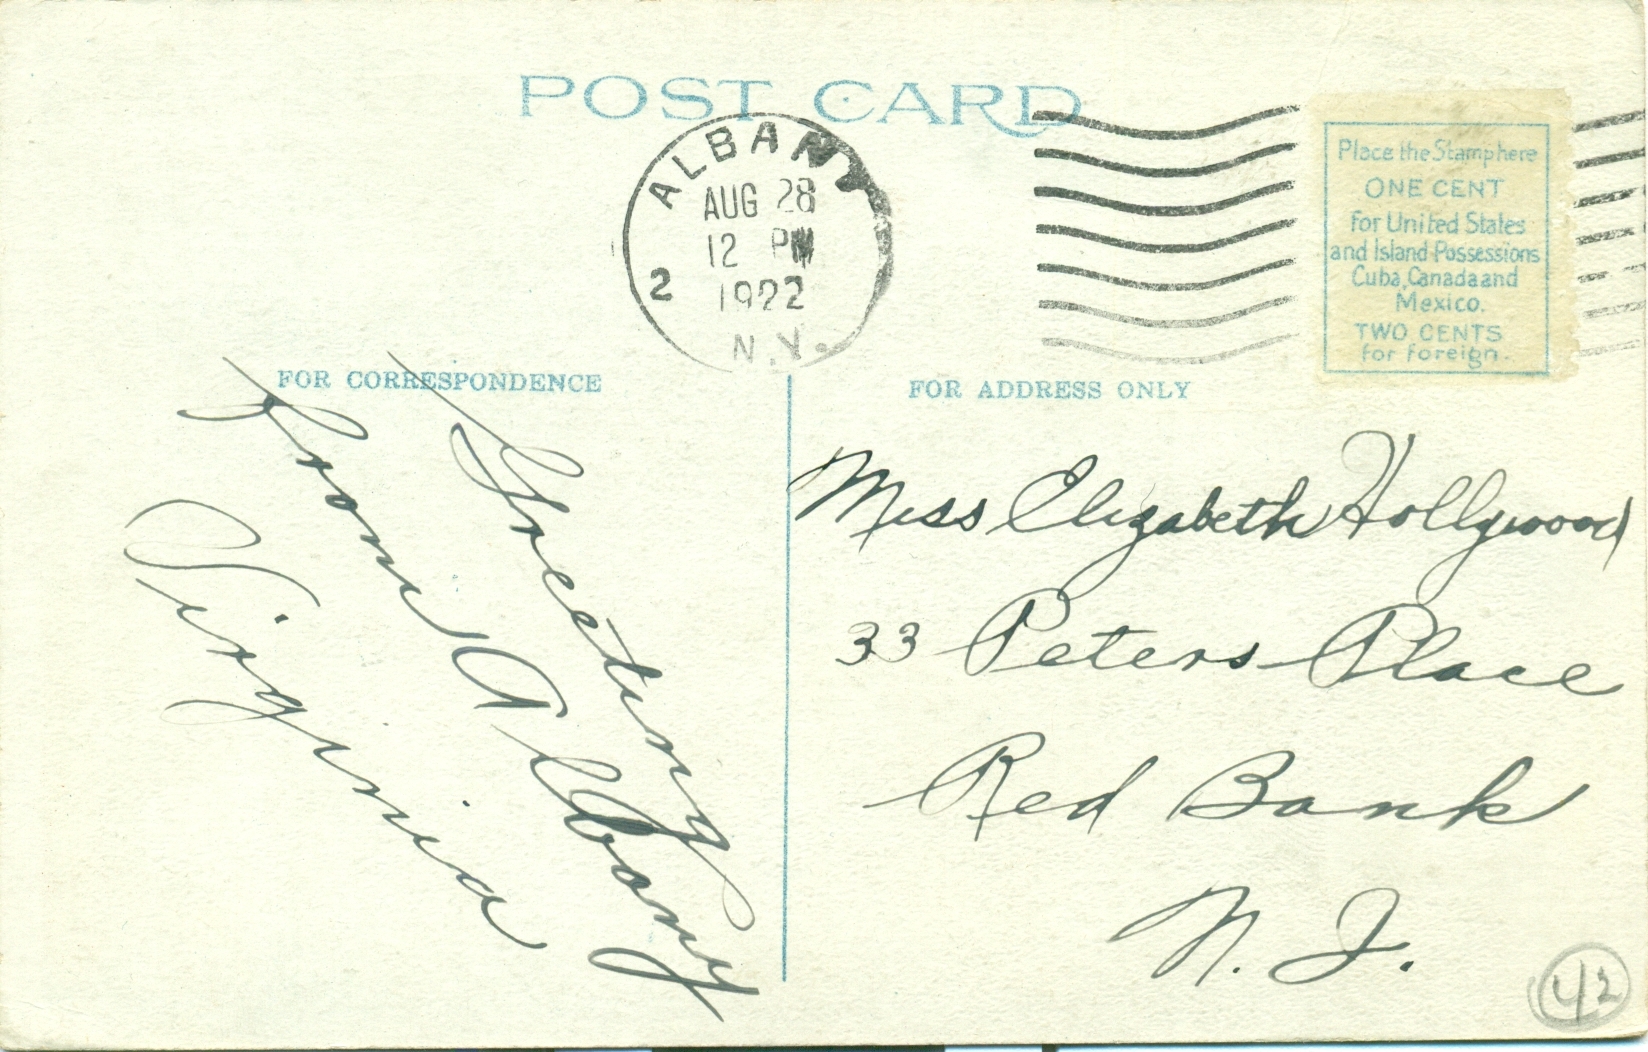 POST CARD
ALBANY
AUG 28
12 PM
1922
2
N.Y.
Place the Stamp here
ONE CENT
for United States
and Island Possessions
Cuba, Canada and
Mexico.
TWO CENTS
for foreign.
FOR CORRESPONDENCE
FOR ADDRESS ONLY
Greeting
from Albany
Virginia
Miss Elizabeth Hollywood
33 Peters Place
Red Bank
N. J.
42